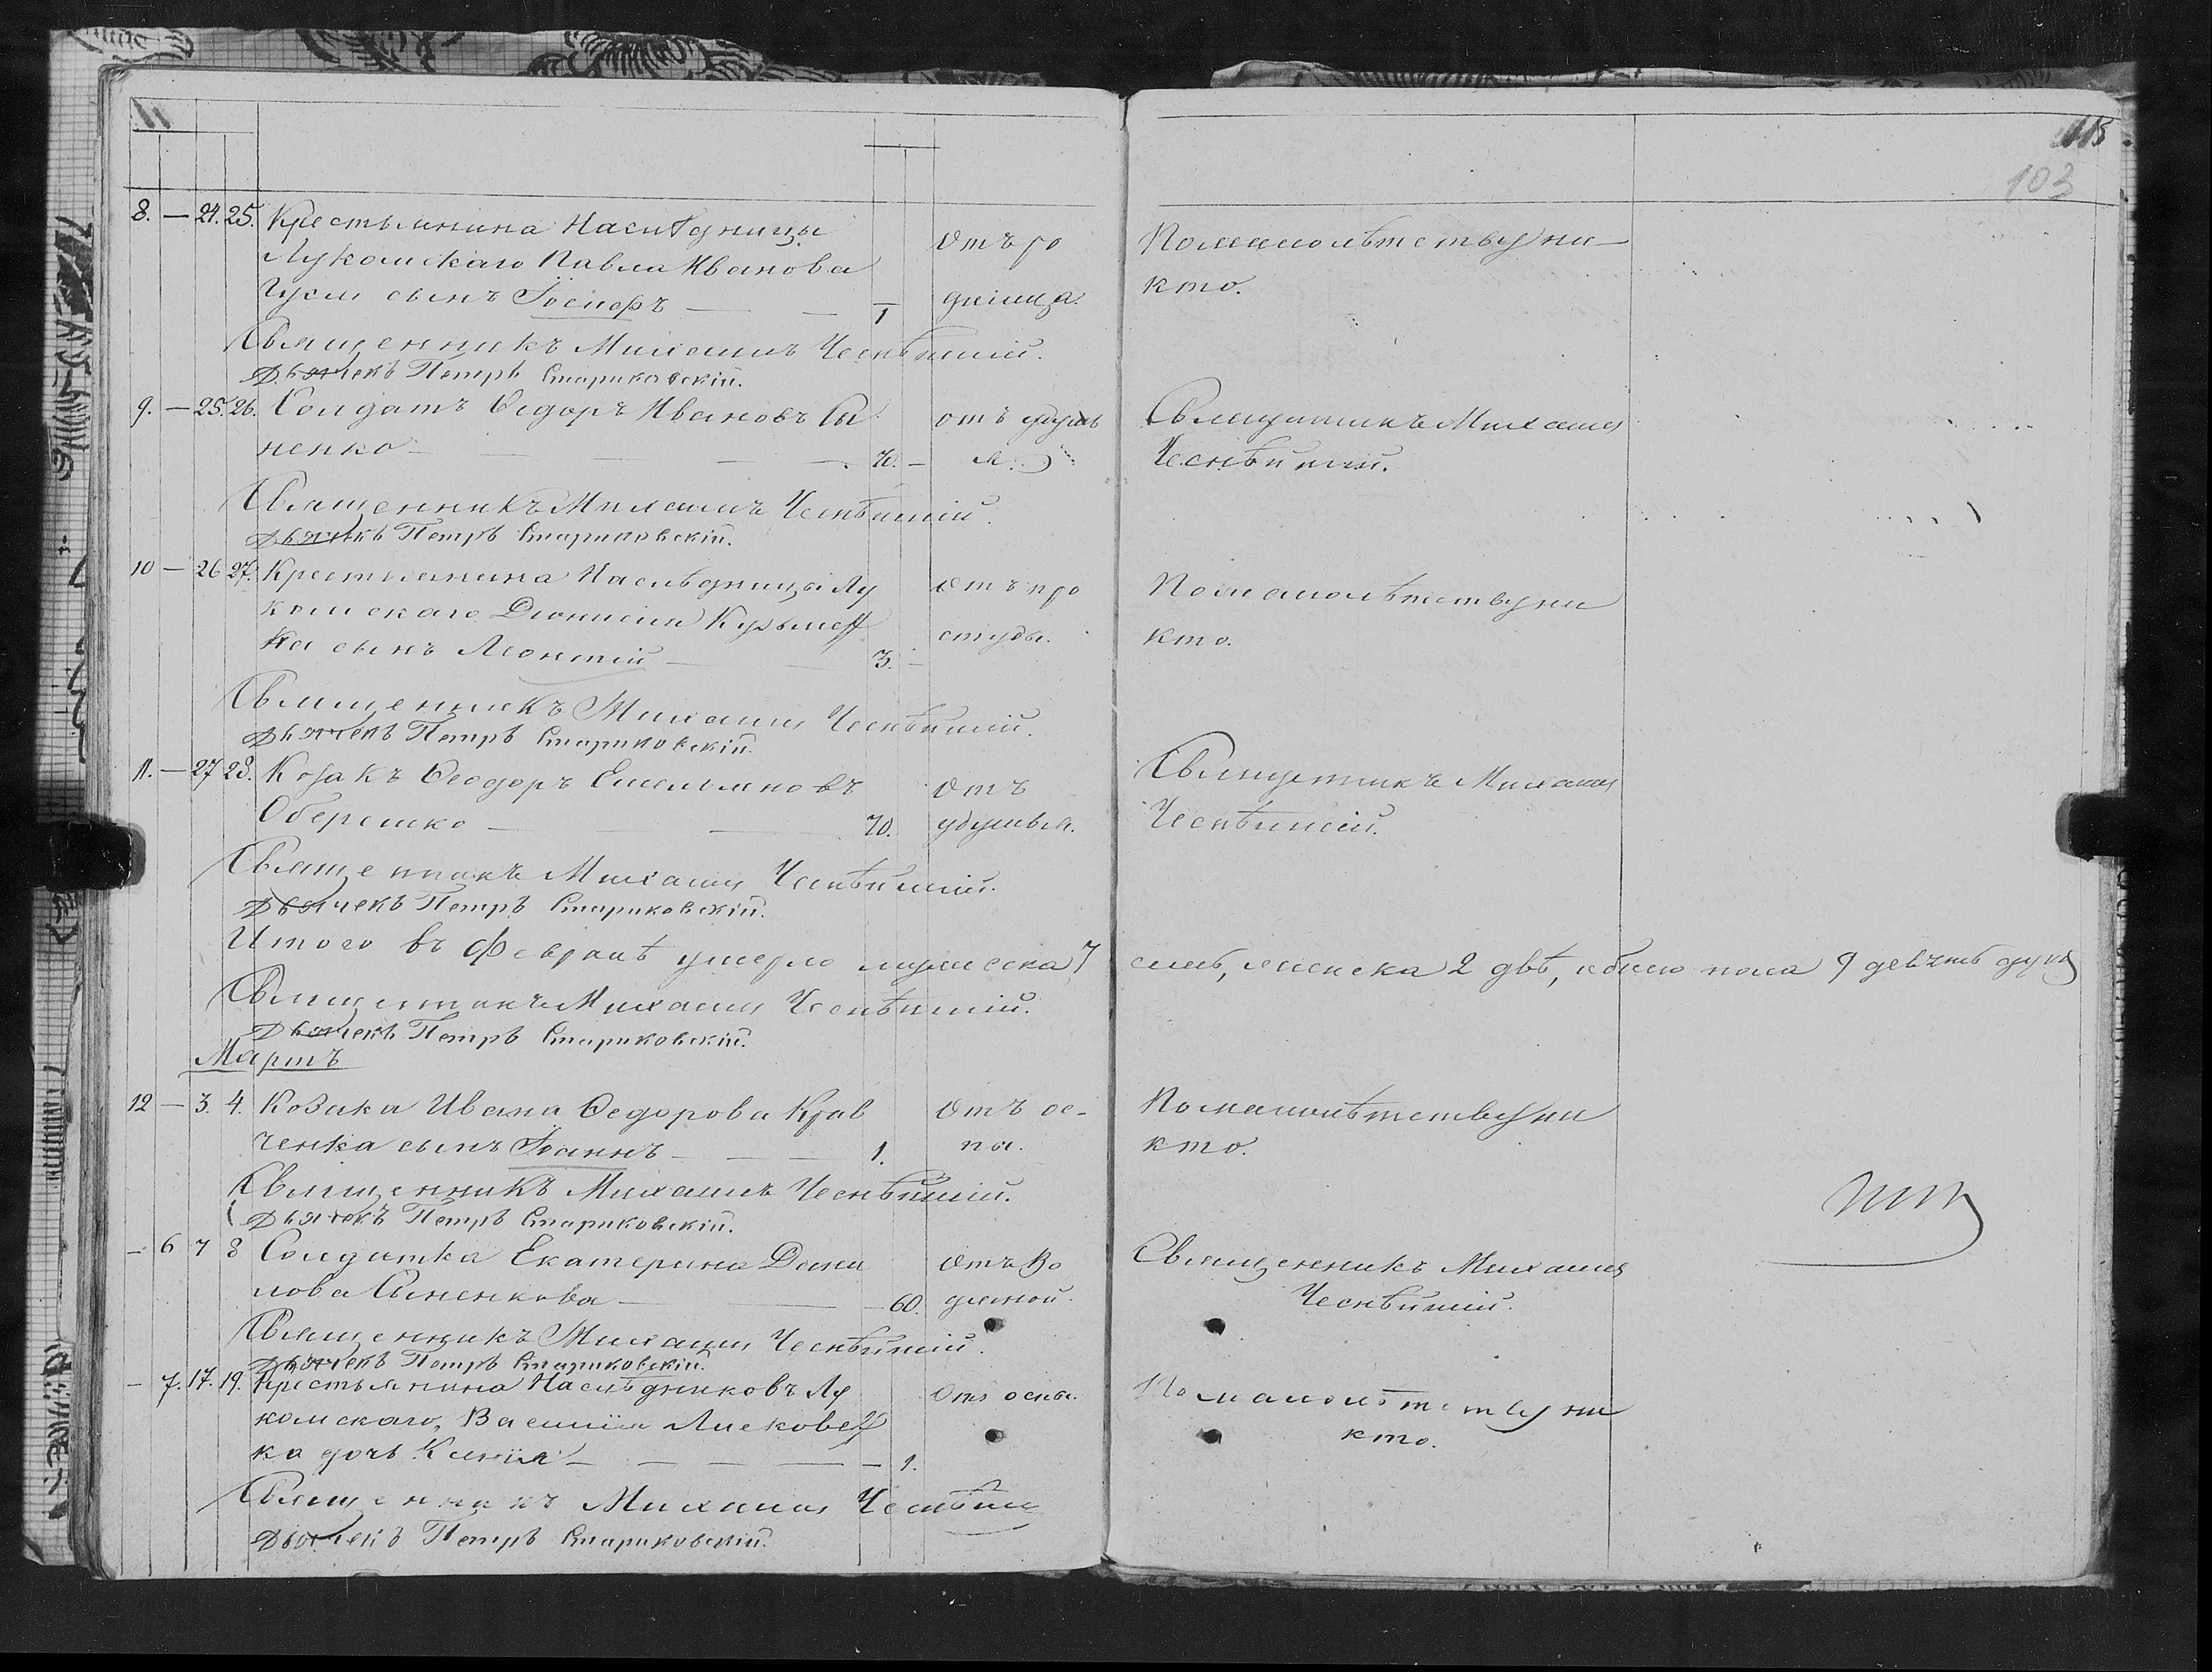 11
115
103
8. — 24. 25. Крестьянина Наслѣдницы
Лукомскаго Павла Иванова
сынъ Іосифъ — — 1
Отъ ро
димца.
Помалолѣтству ни-
кто.
Священникъ Михаилъ
Дьячекъ Петръ Стариковскій.
9. — 25. 26. Солдатъ Ѳедоръ Ивановъ Сы
ненко — — — — 70. —
отъ удушь
я.
Священникъ Михаилъ
Священникъ Михаилъ
Дьячекъ Петръ Стариковскій.
10 — 26 27. Крестьянина Наслѣдницы Лу
комскаго Діонисія Кузьмен
ка сынъ Леонтій — 3. —
Отъ про
студы.
Помалолѣтству ни
кто.
Священникъ Михаилъ
Дьячекъ Петръ Стариковскій.
11. — 27 28. Козакъ Ѳеодоръ Емельяновъ
— — 70.
Отъ
удушья.
Священникъ Михаилъ
Священникъ Михаилъ
Дьячекъ Петръ Стариковскій.
Итого въ Февралѣ умерло мужеска 7 семь, женска 2 двѣ, обоего пола 9 девять душъ
Священникъ Михаилъ
Дьячекъ Петръ Стариковскій.
Мартъ
12 — 3. 4. Козака Ивана Ѳедорова Крав
ченка сынъ Іоаннъ — — — 1.
Отъ ос-
пы.
Помалолѣтству ни
кто.
Священникъ Михаилъ
Дьячекъ Петръ Стариковскій.
— 6 7 8 Солдатка Екатерина Дани
лова Сыненкова — — 60.
Отъ Во
дяной.
Священникъ Михаилъ
Священникъ Михаилъ
Дьячекъ Петръ Стариковскій.
— 7. 17. 19. Крестьянина Наслѣдниковъ Лу
комскаго, Василія Лисковец
ка дочь Ксенія — — — — 1.
Отъ оспы.
Помалолѣтству ни
кто.
Священникъ Михаилъ
Дьячекъ Петръ Стариковскій.